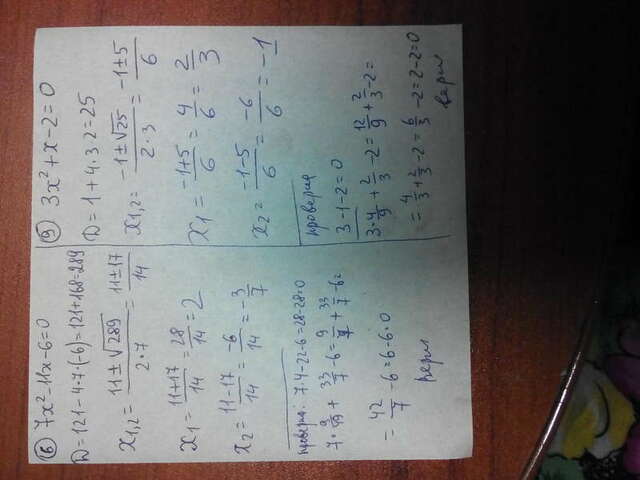 б) 7x²-11x-6=0
D=121-4·7·(-6)=121+168=289
x₁,₂ = (11±√289)/(2·7) = (11±17)/14
x₁ = (11+17)/14 = 28/14 = 2
x₂ = (11-17)/14 = -6/14 = -3/7
проверка: 7·4-22-6=28-28=0
7·9/49 + 33/7 -6 = 9/7 + 33/7 -6=
= 42/7 -6=6-6=0
верн
в) 3x²+x-2=0
D=1+4·3·2=25
x₁,₂ = (-1±√25)/(2·3) = (-1±5)/6
x₁ = (-1+5)/6 = 4/6 = 2/3
x₂ = (-1-5)/6 = -6/6 = -1
проверка
3-1-2=0
3·4/9 + 2/3 -2 = 12/9 + 2/3 -2=
= 4/3 + 2/3 -2 = 6/3 -2=2-2=0
верн